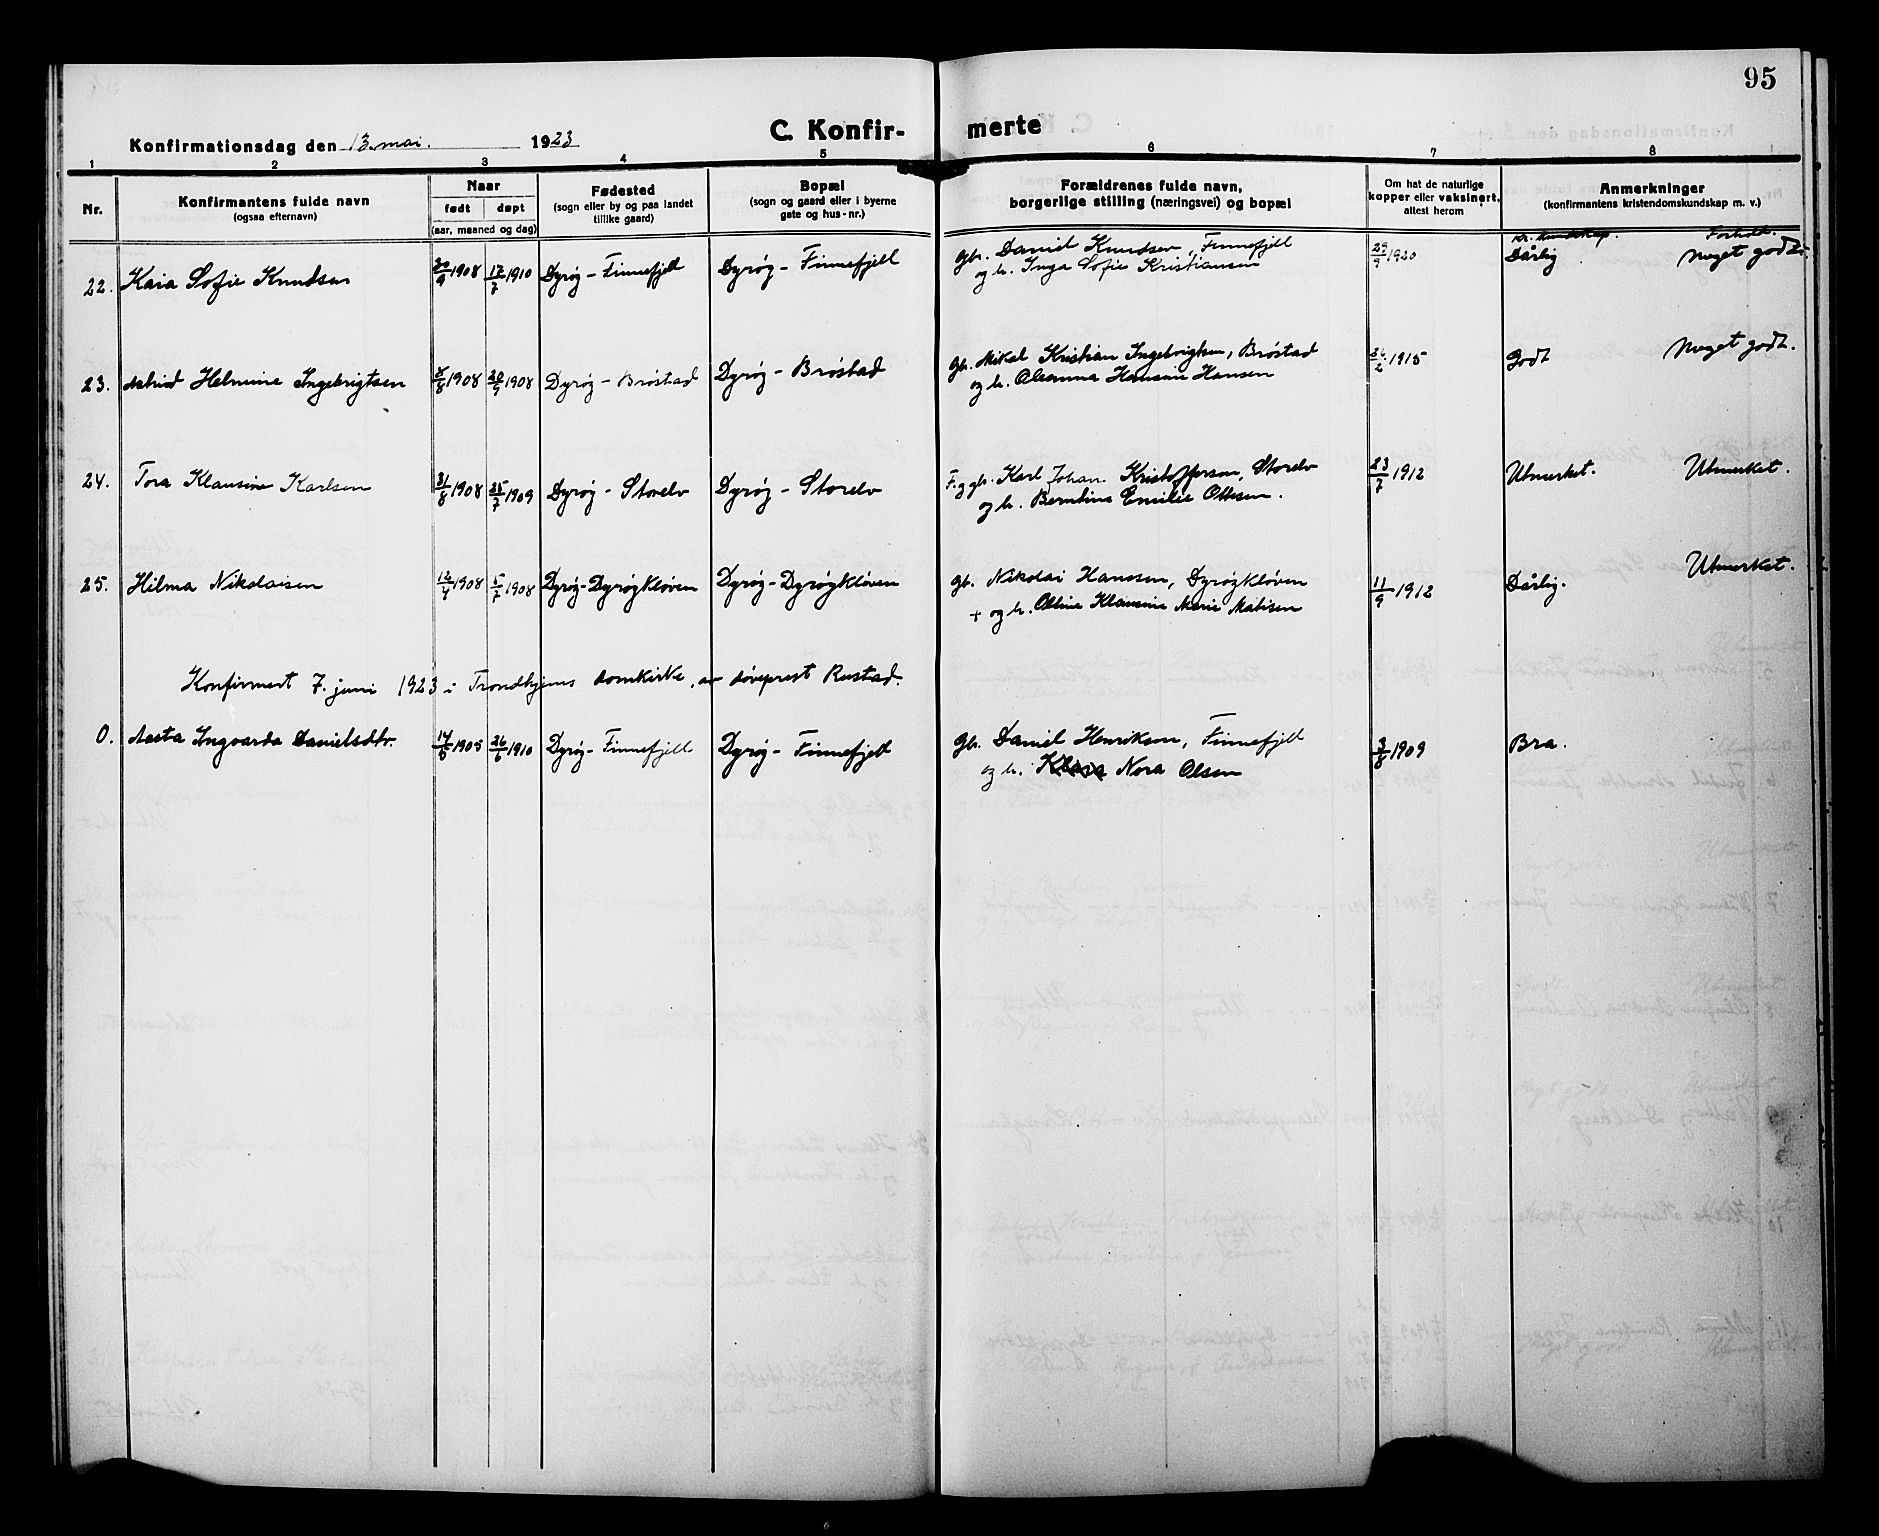 95
C. Konfir- merte
Konfirmationsdag den 13. mai. 1923
1 2 3 4 5 6 7 8
Nr.
Konfirmantens fulde navn
(ogsaa efternavn)
Naar
født døpt
(aar, maaned og dag)
Fødested
(sogn eller by og paa landet
tillike gaard)
Bopæl
(sogn og gaard eller i byerne
gate og hus-nr.)
Forældrenes fulde navn,
borgerlige stilling (næringsvei) og bopæl
Om hat de naturlige
kopper eller vaksinert,
attest herom
Anmerkninger
(konfirmantens kristendomskundskap m. v.)
Kr. kundskap. Forhold.
22. Kaia Sofie Knudsen 30/9 1908 17/7 1910 Dyrøy - Finnefjell Dyrøy - Finnefjell Gbr. Daniel Knudsen, Finnefjell 29/9 1920 Dårlig Meget godt.
og h. Inga Sofie Kristiansen
23. Astrid Helmine Ingebrigtsen 8/8 1908 20/9 1908 Dyrøy - Brøstad Dyrøy - Brøstad Gbr. Mikal Kristian Ingebrigtsen, Brøstad 1915 Godt Meget godt.
og h. Oleanna Hansine Hansen
24. Tora Klausine Karlsen 31/8 1908 25/7 1909 Dyrøy - Storelv Dyrøy - Storelv F. og gbr. Karl Johan Kristoffersen, Storelv 23/7 1912 Utmerket. Utmerket.
og h. Berntine Emilie Ottesen.
25. Hilma Nikolaisen 1908 5/7 1908 Dyrøy - Dyrøykløven Dyrøy - Dyrøykløven Gbr. Nikolai Hansen, Dyrøykløven 11/9 1912 Dårlig. Utmerket.
+ og h. Oline Klausine Marie Matisen
Konfirmert 7. juni 1923 i Trondhjems domkirke, av døveprest Rustad.
0. Aasta Ingvarda Danielsdtr. 1905 26/6 1910 Dyrøy - Finnefjell Dyrøy - Finnefjell Gbr. Daniel Henriksen, Finnefjell 3/8 1909 Bra.
og h. Nora Olsen